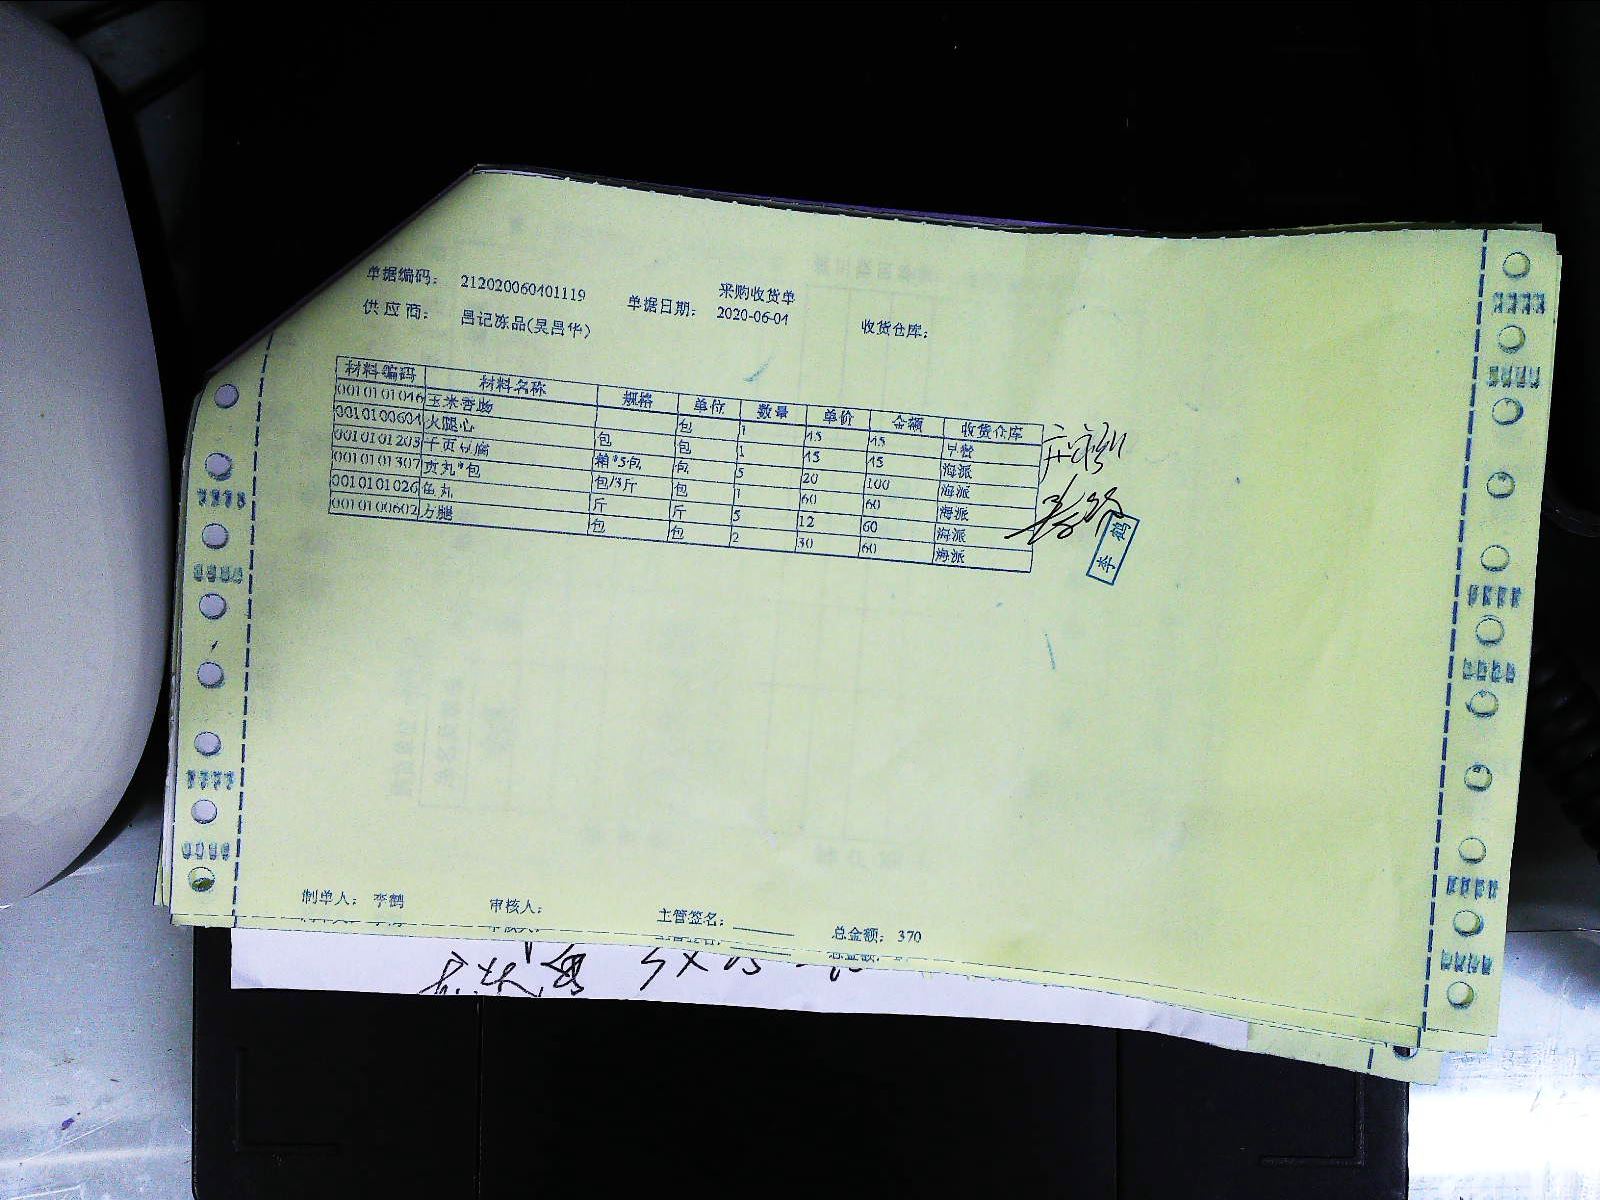 采购收货单
单据编码： 212020060401119 单据日期： 2020-06-04 收货仓库：
供应商： 吕记冻品(吴昌华)
材料编码 材料名称 规格 单位 数量 单价 金额 收货仓库
0010101046 玉米香肠 包 1 45 45 早餐
0010100604 火腿心 包 包 1 45 45 海派
0010101203 千页豆腐 箱*5包 包 5 20 100 海派
0010101307 贡丸*包 包/3斤 包 1 60 60 海派
0010101026 鱼丸 斤 斤 5 12 60 海派
0010100602 方腿 包 包 2 30 60 海派
李鹤
制单人： 李鹤 审核人： 主管签名： 总金额： 370